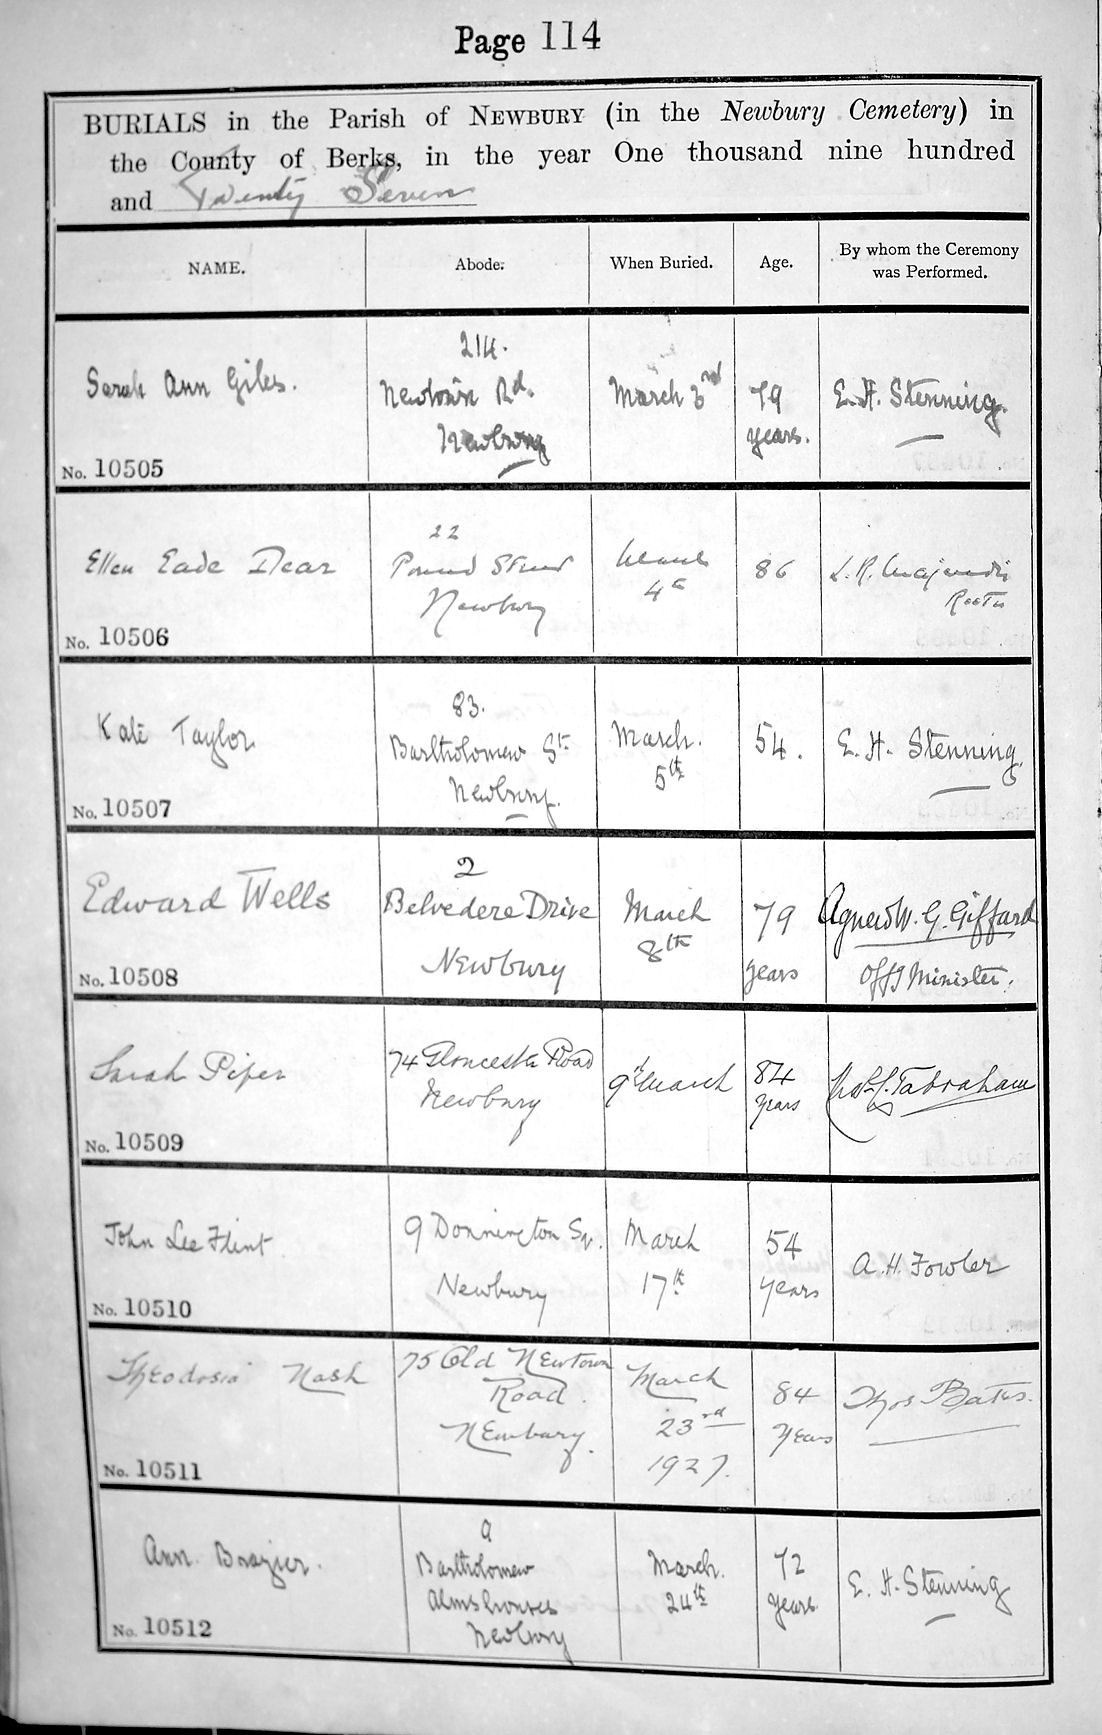 Page 114
BURIALS in the Parish of NEWBURY (in the Newbury Cemetery) in
the County of Berks, in the year One thousand nine hundred
and Twenty Seven
NAME.
Abode.
When Buried.
Age.
By whom the Ceremony
was Performed.
Sarah Ann Giles.
No. 10505
214.
Newtown Rd.
Newbury
March 3rd
79
years.
E. H. Stenning.
Ellen Eade Dear
No. 10506
22
Pound Street
Newbury
March
4th
86
L. R. Majendie
Rector
Kate Taylor
No. 10507
83.
Bartholomew St.
Newbury.
March.
5th
54.
E. H. Stenning.
Edward Wells
No. 10508
2
Belvedere Drive
Newbury
March
8th
79
years
Agnew W. G. Giffard
Offg Minister.
Sarah Piper
No. 10509
74 Gloucester Road
Newbury
9th March
84
years
Tabraham
John Lee Flint
No. 10510
9 Donnington Sq.
Newbury
March
17th
54
years
A. H. Fowler
Theodosia Nash
No. 10511
75 Old Newtown
Road.
Newbury.
March
23rd
1927.
84
years
Thos Bates.
Ann Brazier.
No. 10512
9
Bartholomew
Almshouses
Newbury
March.
24th
72
years.
E. H. Stenning